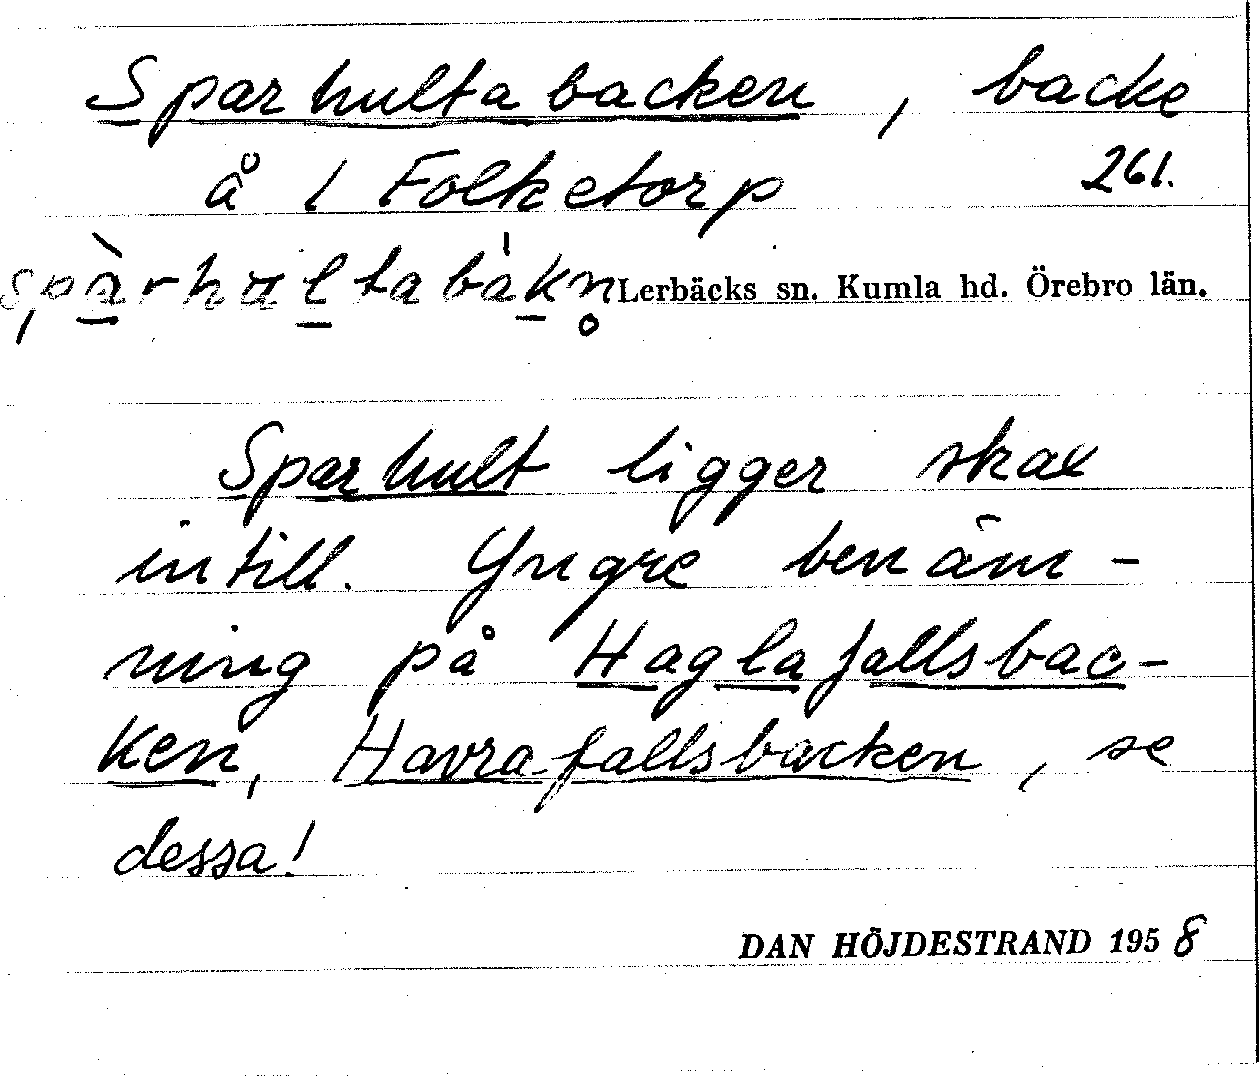 Sparhultabacken, backe
å 1 Folketorp 261.
Lerbäcks sn. Kumla hd. Örebro län.
Sparhult ligger strax
intill. Yngre benäm-
ning på Haglafallsbac-
ken, Havrafallsbacken, se
dessa!
DAN HÖJDESTRAND 1958